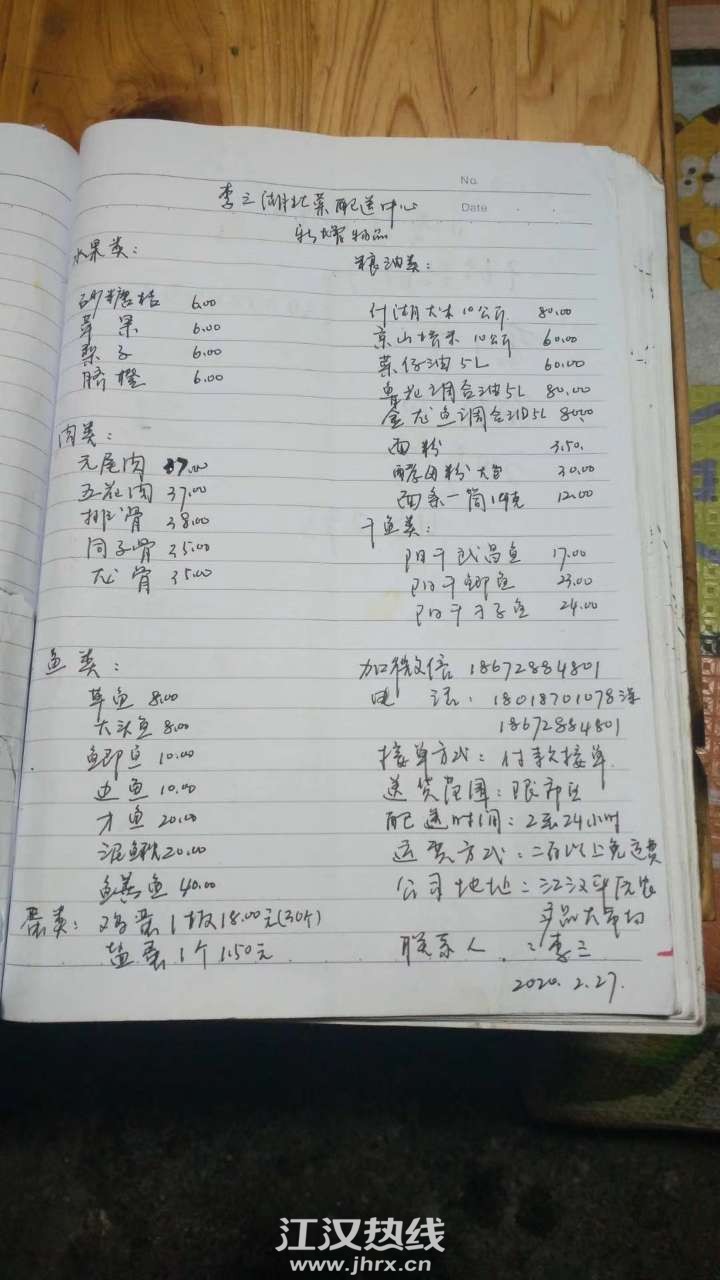 No.
Date
李三湖北菜配送中心
新增物品
水果类：
砂糖桔 6.00
苹果 6.00
梨子 6.00
脐橙 6.00
肉类：
元尾肉 37.00
五花肉 37.00
排骨 38.00
同子骨 25.00
龙骨 35.00
鱼类：
草鱼 8.00
大头鱼 8.00
鲫鱼 10.00
边鱼 10.00
才鱼 20.00
泥鳅 20.00
鳝鱼 40.00
蛋类：鸡蛋1板18.00元(30个)
盐蛋1个1.50元
粮油类：
大米10公斤 80.00
京山桥米10公斤 60.00
菜仔油5L 60.00
鲁花调合油5L 80.00
金龙鱼调合油5L 80.00
面粉 3.50.
酵母粉大包 30.00
面条一筒 12.00
干鱼类：
阳干武昌鱼 17.00
阳干鲫鱼 23.00
阳干才子鱼 24.00
加微信 18672884801
电话：18018701078
18672884801
接单方式：付款接单.
送货范围：限市区
配送时间：2至24小时
运费方式：二百以上免运费
公司地址：江汉
产品大市场
联系人：李三
2020.2.27.
江汉热线
www.jhrx.cn